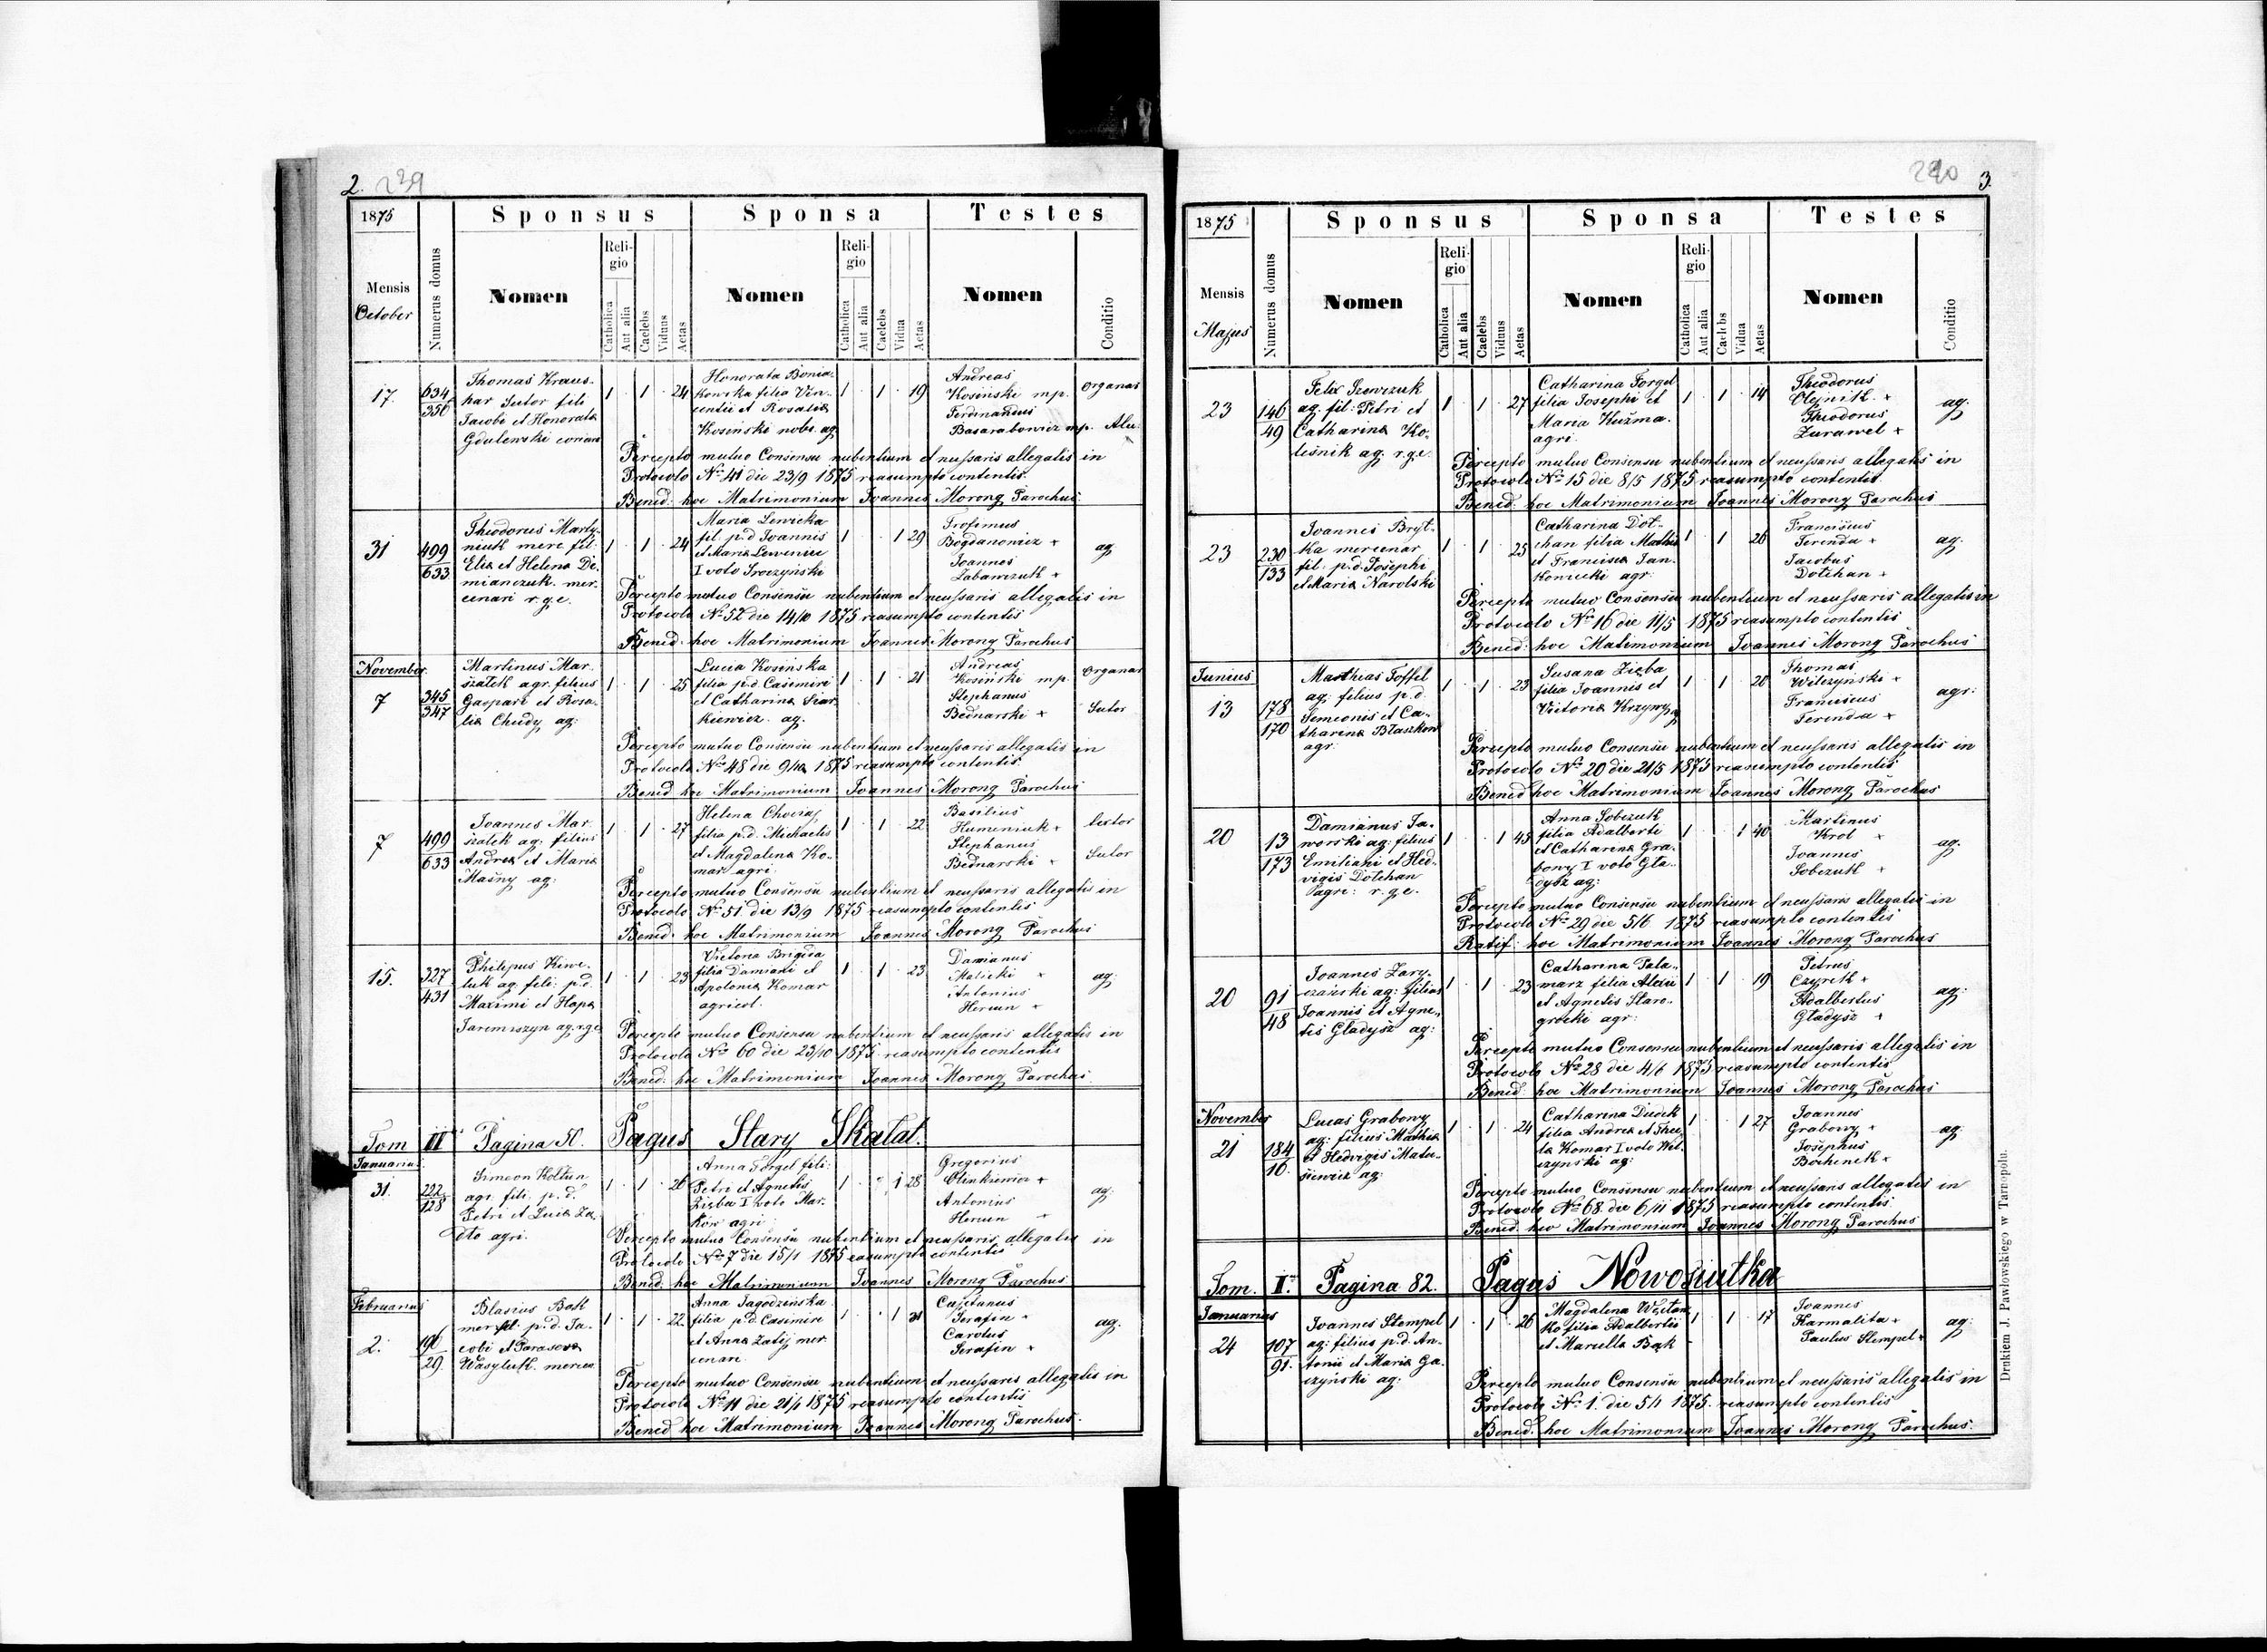 2. 239
1875 Sponsus Sponsa Testes
Mensis October
Numerus domus
Nomen
Religio
Catholica
Aut alia
Caelebs
Viduus
Aetas
Nomen
Religio
Catholica
Aut alia
Caelebs
Vidua
Aetas
Nomen
Conditio
17. 634/356
Thomas Kraus-
har Sutor fili
Jacobi et Honorata
Gdulewski
1 1 24
Honorata Bonia-
kowska filia Vin-
centii et Rosalia
Kosinski nobi. ag
1 1 19
Andreas
Kosinski mp.
Ferdinandus
Basarabowicz mp.
Organar
Percepto mutuo Consensu nubentium et neussaris allegatis in
Protocolo No 41 die 23/9 1875 reasumpto contentis.
Bened: hoc Matrimonium Joannes Morong Parochus
31 499/633
Theodorus Marty-
niuk merc fil:
Elia et Helena De-
mianczuk. mer-
cenari r.g.c.
1 1 24
Maria Lewicka
fil p.d Joannis
et Maria
I voto Sroczyński
1 1 29
Trofimus
Bogdanowicz +
Joannes
Zabamczuk +
ag
Percepto mutuo Consensu nubentium et neussaris allegatis in
Protocolo No 52 die 14/10 1875 reasumpto contentis
Bened: hoc Matrimonium Joannes Morong Parochus
November
7 345/347
Martinus Mar-
szalek agr. filius
Gaspari et Rosa-
lia Chudy ag:
1 1 25
Lucia Kosinska
filia p.d Casimiri
et Catharina Siar-
kiewicz. ag.
1 1 21
Andreas
Kosinski mp
Stephanus
Bednarski +
Organar
Sutor
Percepto mutuo Consensu nubentium et neussaris allegatis in
Protocolo No 48 die 9/10 1875 reasumpto contentis.
Bened hoc Matrimonium Joannes Morong Parochus
7 499/633
Joannes Mar-
szalek ag: filius
Andrea et Maria
Maśny ag:
1 1 27
Helena Chociaj
filia p.d. Michaelis
et Magdalena Ko-
mar agri.
1 1 22
Basilius
Humeniuk +
Stephanus
Bednarski +
Sutor
Percepto mutuo Consensu nubentium et neussaris allegatis in
Protocolo No 51. die 13/9 1875 reasumpto contentis
Bened: hoc Matrimonium Joannes Morong Parochus
15. 327/431
Philipus Kiwe-
luk ag. fili: p.d.
Maximi et Hapa
Jaremiszyn ag. r.g.c
1 1 23
Victoria Brigida
filia Damiani et
Apolonia Komar
agricol.
1 1 23
Damianus
Malicki +
Antonius
Herun +
ag:
Percepto mutuo Consensu nubentium et neussaris allegatis in
Protocolo No 60 die 23/10 1875 reasumpto contentis
Bened: hoc Matrimonium Joannes Morong Parochus
Tom II Pagina 50. Pagus Stary Skalat.
Januarius
31. 222/128
Simeon Koltun
agr. fili. p.d.
Petri et Lucia Za-
oto agri.
1 1 26
Anna Forgel fili:
Petri et Agnetis
Zięba I voto Mar-
ków agri
1 1 28
Gregorius
Olinkiewicz +
Antonius
Herun +
ag:
Percepto mutuo Consensu nubentium et neussaris allegatis in
Protocolo No 7 die 15/1 1875 easumpto contentis
Bened: hoc Matrimonium Joannes Morong Parochus
Februarius
2. 196/29.
Blasius Bak
mer fil. p.d. Ja-
cobi et Parasova
Wasyluk. mercen
1 1 22
Anna Jagodzinska
filia p.d. Casimiri
et Anna Zatij mer
cenari
1 1 31
Cajetanus
Serafin +
Carolus
Serafin +
ag.
Percepto mutuo Consensu nubentium et neussaris allegatis in
Protocolo No 11 die 21/1 1875 reasumpto contentis
Bened hoc Matrimonium Joannes Morong Parochus.
240 3.
1875 Sponsus Sponsa Testes
Mensis Majus
Numerus domus
Nomen
Religio
Catholica
Aut alia
Caelebs
Viduus
Aetas
Nomen
Religio
Catholica
Aut alia
Caelebs
Vidua
Aetas
Nomen
Conditio
23 146/49
Felix Szewczuk
ag. fil: Petri et
Catharina Ko-
leśnik ag. r.g.c.
1 1 27
Catharina Forgel
filia Josephi et
Maria Kuźma.
agri.
1 1 14
Theodorus
Olejnik +
Theodorus
Zurawel +
ag.
Percepto mutuo Consensu nubentium et neussaris allegatis in
Protocolo No 15 die 8/5 1875 reasumpto contentis.
Bened: hoc Matrimonium Joannes Morong Parochus
23 230/133
Joannes Bryt-
ka mercenar
fil: p.d. Josephi
et Maria Narolski
1 1 25
Catharina Dot-
chan filia Mathia
et Francisca Jan-
konicki agr.
1 1 26
Franciscus
Ferenda +
Jacobus
Dotchan +
ag.
Percepto mutuo Consensu nubentium et neussaris allegatis in
Protocolo No 16 die 11/5 1875 reasumpto contentis
Bened: hoc Matimonium Joannes Morong Parochus
Junius
13 178/170
Mathias Foffel
ag. filius p.d.
Semeonis et Ca-
tharina Blaszkow
agr.
1 1 23
Susana Zięba
filia Joannis et
Victoria Krzywy ag
1 1 20
Thomas
Wilczynski +
Franciscus
Ferenda +
agr:
Percepto mutuo Consensu nubentium et neussaris allegatis in
Protocolo No 20 die 21/5 1875 reasumpto contentis
Bened hoc Matrimonium Joannes Morong Parochus
20 13/173
Damianus Ja-
worski ag. filius
Emiliani et Hed-
vigis Dotchan
agri: r.g.c.
1 1 45
Anna Sobczuk
filia Adalberti
et Catharina Gra-
bowy I voto Gła-
dysz ag:
1 1 40
Martinus
Krol +
Joannes
Sobczuk +
ag.
Percepto mutuo Consensu nubentium et neussaris allegatis in
Protocolo No 29 die 5/6 1875 reasumpto contentis
Ratif: hoc Matrimonium Joannes Morong Parochus
20 91/48
Joannes Zary-
czański ag: filius
Joannis et Agne-
tis Gładysz ag:
1 1 23
Catharina Pala-
marz filia Alexii
et Agnetis Staro-
grocki agr:
1 1 19
Petrus
Czyrek +
Adalbertus
Gładysz +
ag:
Percepto mutuo Consensu nubentium et neussaris allegatis in
Protocolo No 28 die 4/6 1875 reasumpto contentis
Bened: hoc Matrimonium Joannes Morong Parochus
November
21 184/16.
Lucas Grabowy
ag: filius Mathia
et Hedvigis Matu-
siewicz ag:
1 1 24
Catharina Dudek
filia Andrea et The-
kla Komar I voto Wil-
czynski ag:
1 1 27
Joannes
Grabowy +
Josephus
Bochenek +
ag:
Percepto mutuo Consensu nubentium et neussaris allegatis in
Protocolo No 68. die 6/11 1875 reasumpto contentis.
Bened: hoc Matrimonium Joannes Morong Parochus
Tom. I. Pagina 82. Pagus Nowosiutka
Januarius
24 107/91.
Joannes Stempel
ag: filius p.d. An-
tonii et Maria Ga-
czyński ag:
1 1 26
Magdalena
filia Adalbertis
et Mariella Bąk
1 1 17
Joannes
Karmalita +
Paulus Stempel +
ag:
Percepto mutuo Consensu nubentium et neussaris allegatis in
Protocolo No 1. die 5/1 1875. reasumpto contentis
Bened: hoc Matrimonium Joannes Morong Parochus.
Drukiem J. Pawłowskiego w Tarnopolu.